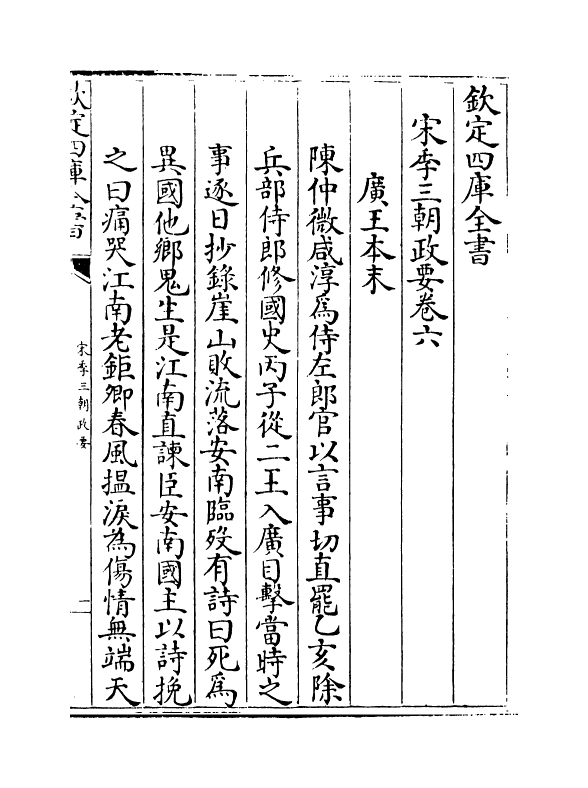 欽定四庫全書
宋季三朝政要卷六
廣王本末
陳仲微咸淳爲侍左郎官以言事切直罷乙亥除
兵部侍郎修國史丙子從二王入廣目擊當時之
事逐日抄錄崖山敗流落安南臨歿有詩曰死爲
異國他鄉鬼生是江南直諫臣安南國主以詩挽
之曰痛哭江南老鉅卿春風搵淚為傷情無端天
欽定四庫全書
宋季三朝政要
一